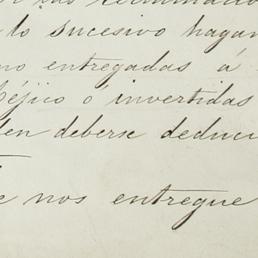 lo sucesivo hagan
no entregadas á
Méjico ó invertidas
den deberse deduci
e nos entregue